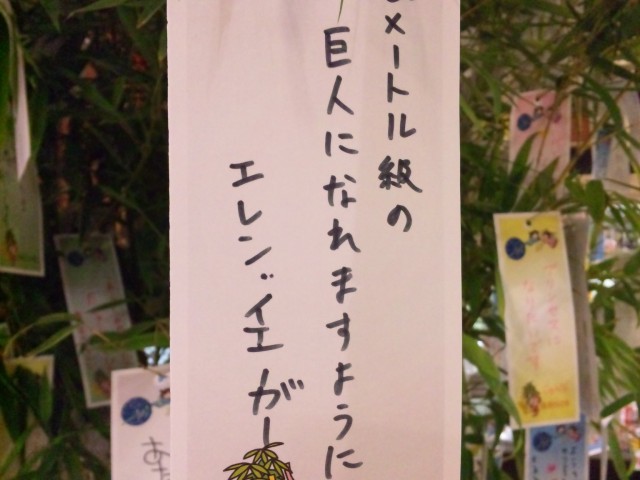 メートル級の
巨人になれますように
エレン・イエガー